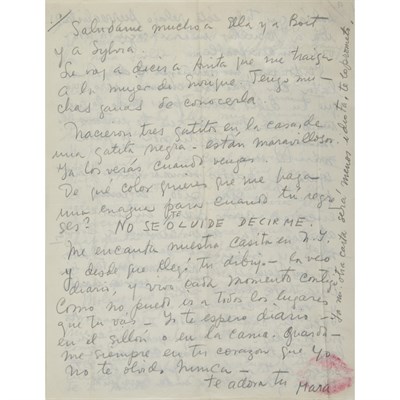 Saludame mucho a Ella y a Bert
y a Sylvia.
Le voy a decir a Anita que me traiga
a la mujer de Enrique. Tengo mu-
chas ganas de conocerla.
Nacieron tres gatitos en la casa, de
una gatita negra - están maravillosos.
Ya los verás cuando vengas.
De qué color quieres que me haga
una enagua para cuando tú regre-
ses? NO SE TE OLVIDE DECIRME.
Me encanta nuestra casita en N.Y.
y desde que llegó tu dibujo - la veo
diario, y vivo cada momento contigo
Como no puedo ir a todos los lugares
que tú vas - Yo te espero diario -
en el sillón o en la cama. Guarda-
me siempre en tu corazón que Yo
no te olvido nunca -
te adora tu Mara
Ya mi otra carta será menos idiota, te lo prometo.